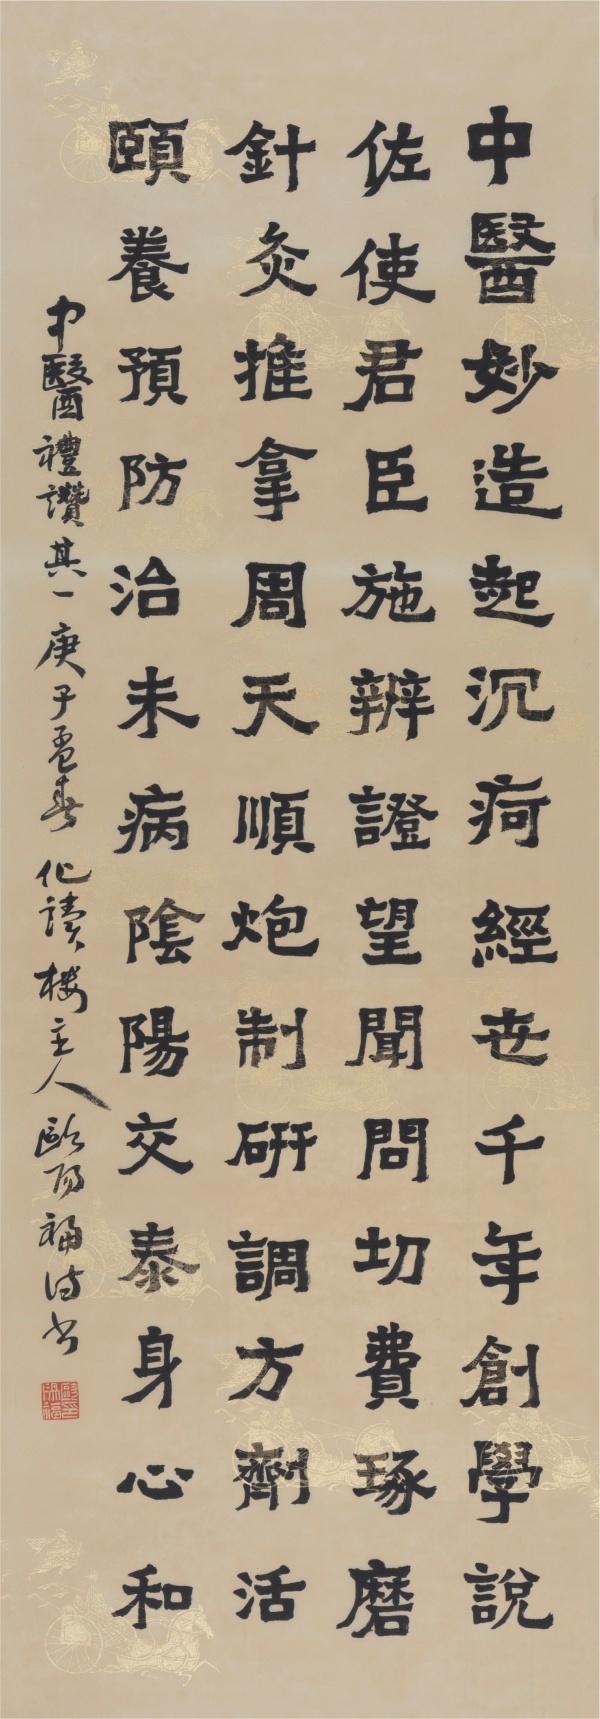 中醫妙造起沉疴經世千年創學說
佐使君臣施辨證望聞問切費琢磨
針灸推拿周天順炮制研調方劑活
頤養預防治未病陰陽交泰身心和
中醫禮讚其一庚子孟春化讀楼主人歐陽福诗书